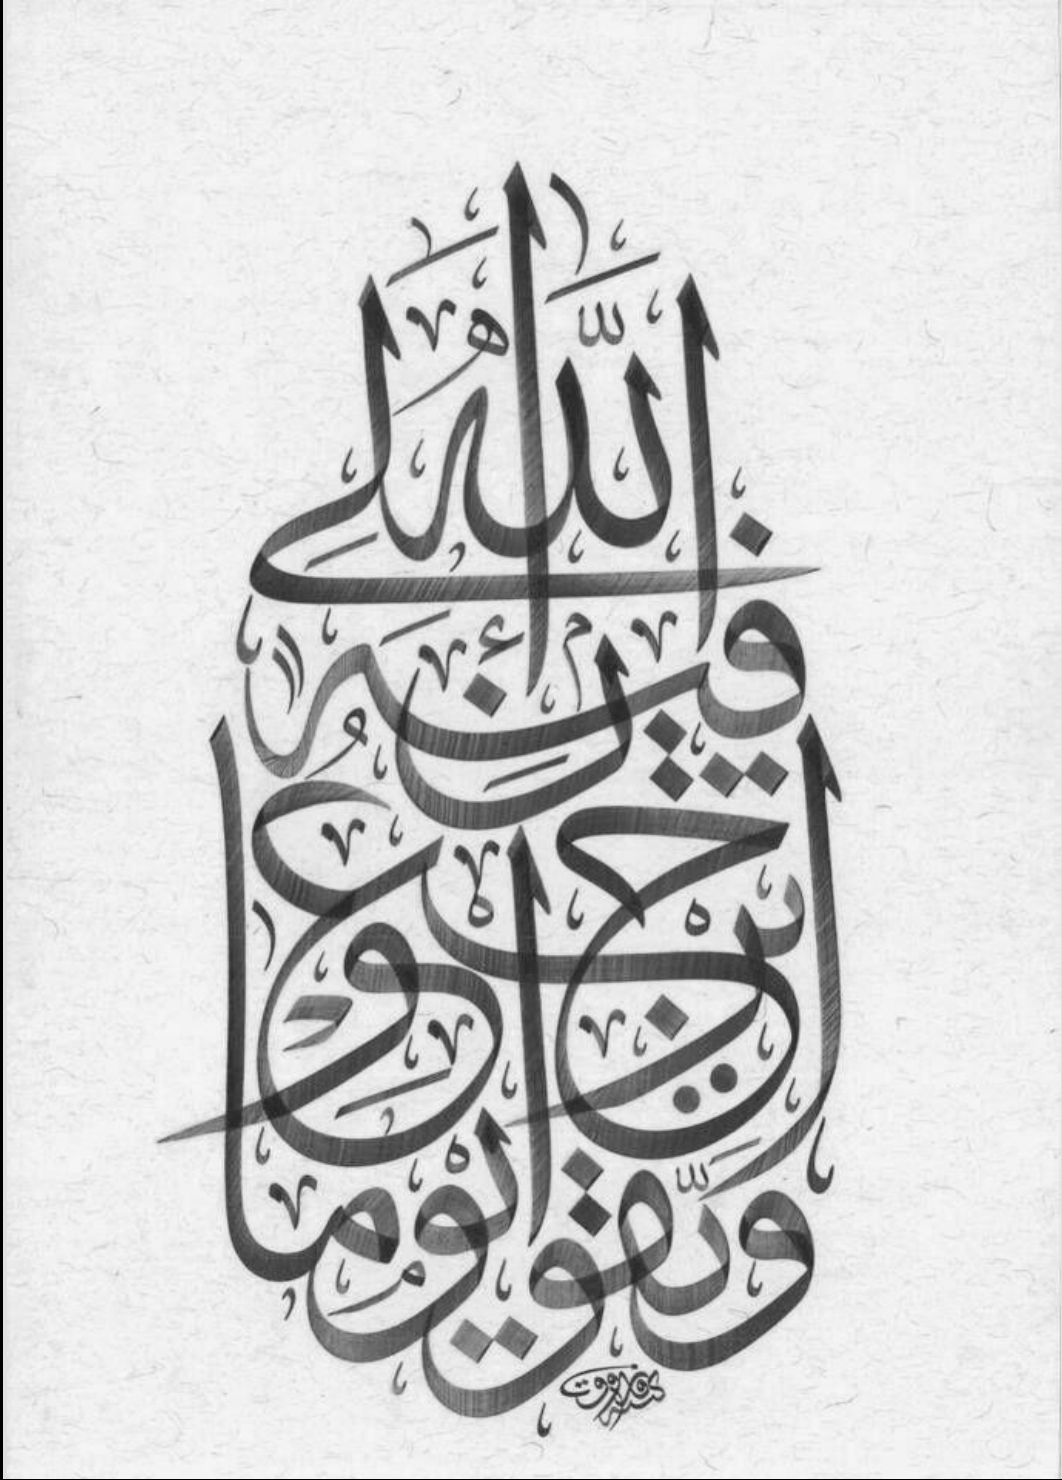 وَاتَّقُوا يَوْمًا
تُرْجَعُونَ
فِيهِ إِلَى اللَّهِ